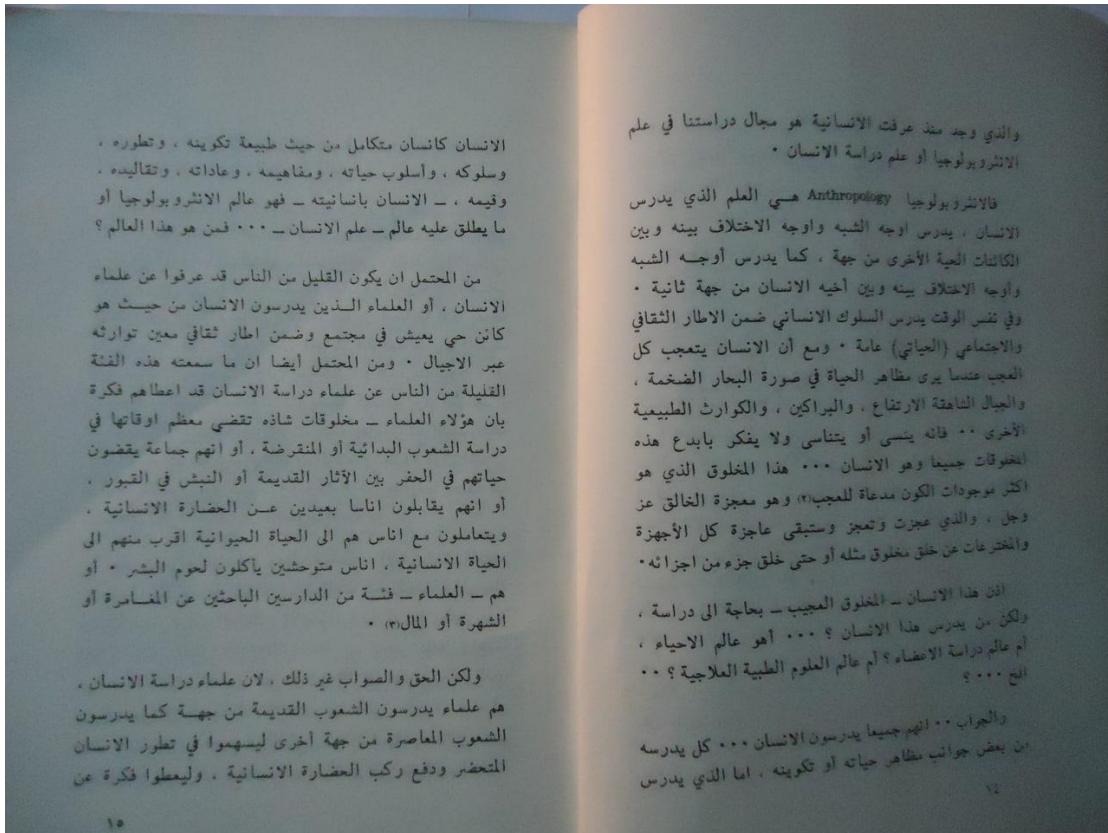 والذي وجد منذ عرفت الانسانية هو مجال دراستنا في علم
الانثروبولوجيا أو علم دراسة الانسان ٠
فالانثروبولوجيا Anthropology هــي العلم الذي يدرس
الانسان ، يدرس اوجه الشبه واوجه الاختلاف بينه وبين
الكائنات الحية الأخرى من جهة ، كما يدرس أوجــه الشبه
وأوجه الاختلاف بينه وبين أخيه الانسان من جهة ثانية ٠
وفي نفس الوقت يدرس السلوك الانساني ضمن الاطار الثقافي
والاجتماعي (الحياتي) عامة ٠ ومع أن الانسان يتعجب كل
العجب عندما يرى مظاهر الحياة في صورة البحار الضخمة ،
والجبال الشاهقة الارتفاع ، والبراكين ، والكوارث الطبيعية
الأخرى ٠٠ فانه ينسى أو يتناسى ولا يفكر بابدع هذه
المخلوقات جميعا وهو الانسان ٠٠٠ هذا المخلوق الذي هو
اكثر موجودات الكون مدعاة للعجب(٢) وهو معجزة الخالق عز
وجل ، والذي عجزت وتعجز وستبقى عاجزة كل الأجهزة
والمخترعات عن خلق مخلوق مثله أو حتى خلق جزء من اجزائه٠
اذن هذا الانسان ــ المخلوق العجيب ــ بحاجة الى دراسة ،
ولكن من يدرس هذا الانسان ؟ ٠٠٠ أهو عالم الاحياء ،
أم عالم دراسة الاعضاء ؟ أم عالم العلوم الطبية العلاجية ؟ ٠٠
الخ ٠٠٠ ؟
والجواب ٠٠ انهم جميعا يدرسون الانسان ٠٠٠ كل يدرسه
من بعض جوانب مظاهر حياته أو تكوينه ، اما الذي يدرس
١٤
الانسان كانسان متكامل من حيث طبيعة تكوينه ، وتطوره ،
وسلوكه ، وأسلوب حياته ، ومفاهيمه ، وعاداته ، وتقاليده ،
وقيمه ، ــ الانسان بانسانيته ــ فهو عالم الانثروبولوجيا أو
ما يطلق عليه عالم ــ علم الانسان ــ ٠٠٠ فمن هو هذا العالم ؟
من المحتمل ان يكون القليل من الناس قد عرفوا عن علماء
الانسان ، أو العلماء الــذين يدرسون الانسان من حيــث هو
كائن حي يعيش في مجتمع وضمن اطار ثقافي معين توارثه
عبر الاجيال ٠ ومن المحتمل أيضا ان ما سمعته هذه الفئة
القليلة من الناس عن علماء دراسة الانسان قد اعطاهم فكرة
بان هؤلاء العلماء ــ مخلوقات شاذه تقضي معظم اوقاتها في
دراسة الشعوب البدائية أو المنقرضة ، أو انهم جماعة يقضون
حياتهم في الحفر بين الآثار القديمة أو النبش في القبور ،
أو انهم يقابلون اناسا بعيدين عــن الحضارة الانسانية ،
ويتعاملون مع اناس هم الى الحياة الحيوانية اقرب منهم الى
الحياة الانسانية ، اناس متوحشين يأكلون لحوم البشر ٠ أو
هم ــ العلماء ــ فئــة من الدارسين الباحثين عن المغــامرة أو
الشهرة أو المال(٣) ٠
ولكن الحق والصواب غير ذلك ، لان علماء دراسة الانسان ،
هم علماء يدرسون الشعوب القديمة من جهــة كما يدرسون
الشعوب المعاصرة من جهة أخرى ليسهموا في تطور الانسان
المتحضر ودفع ركب الحضارة الانسانية ، وليعطوا فكرة عن
١٥